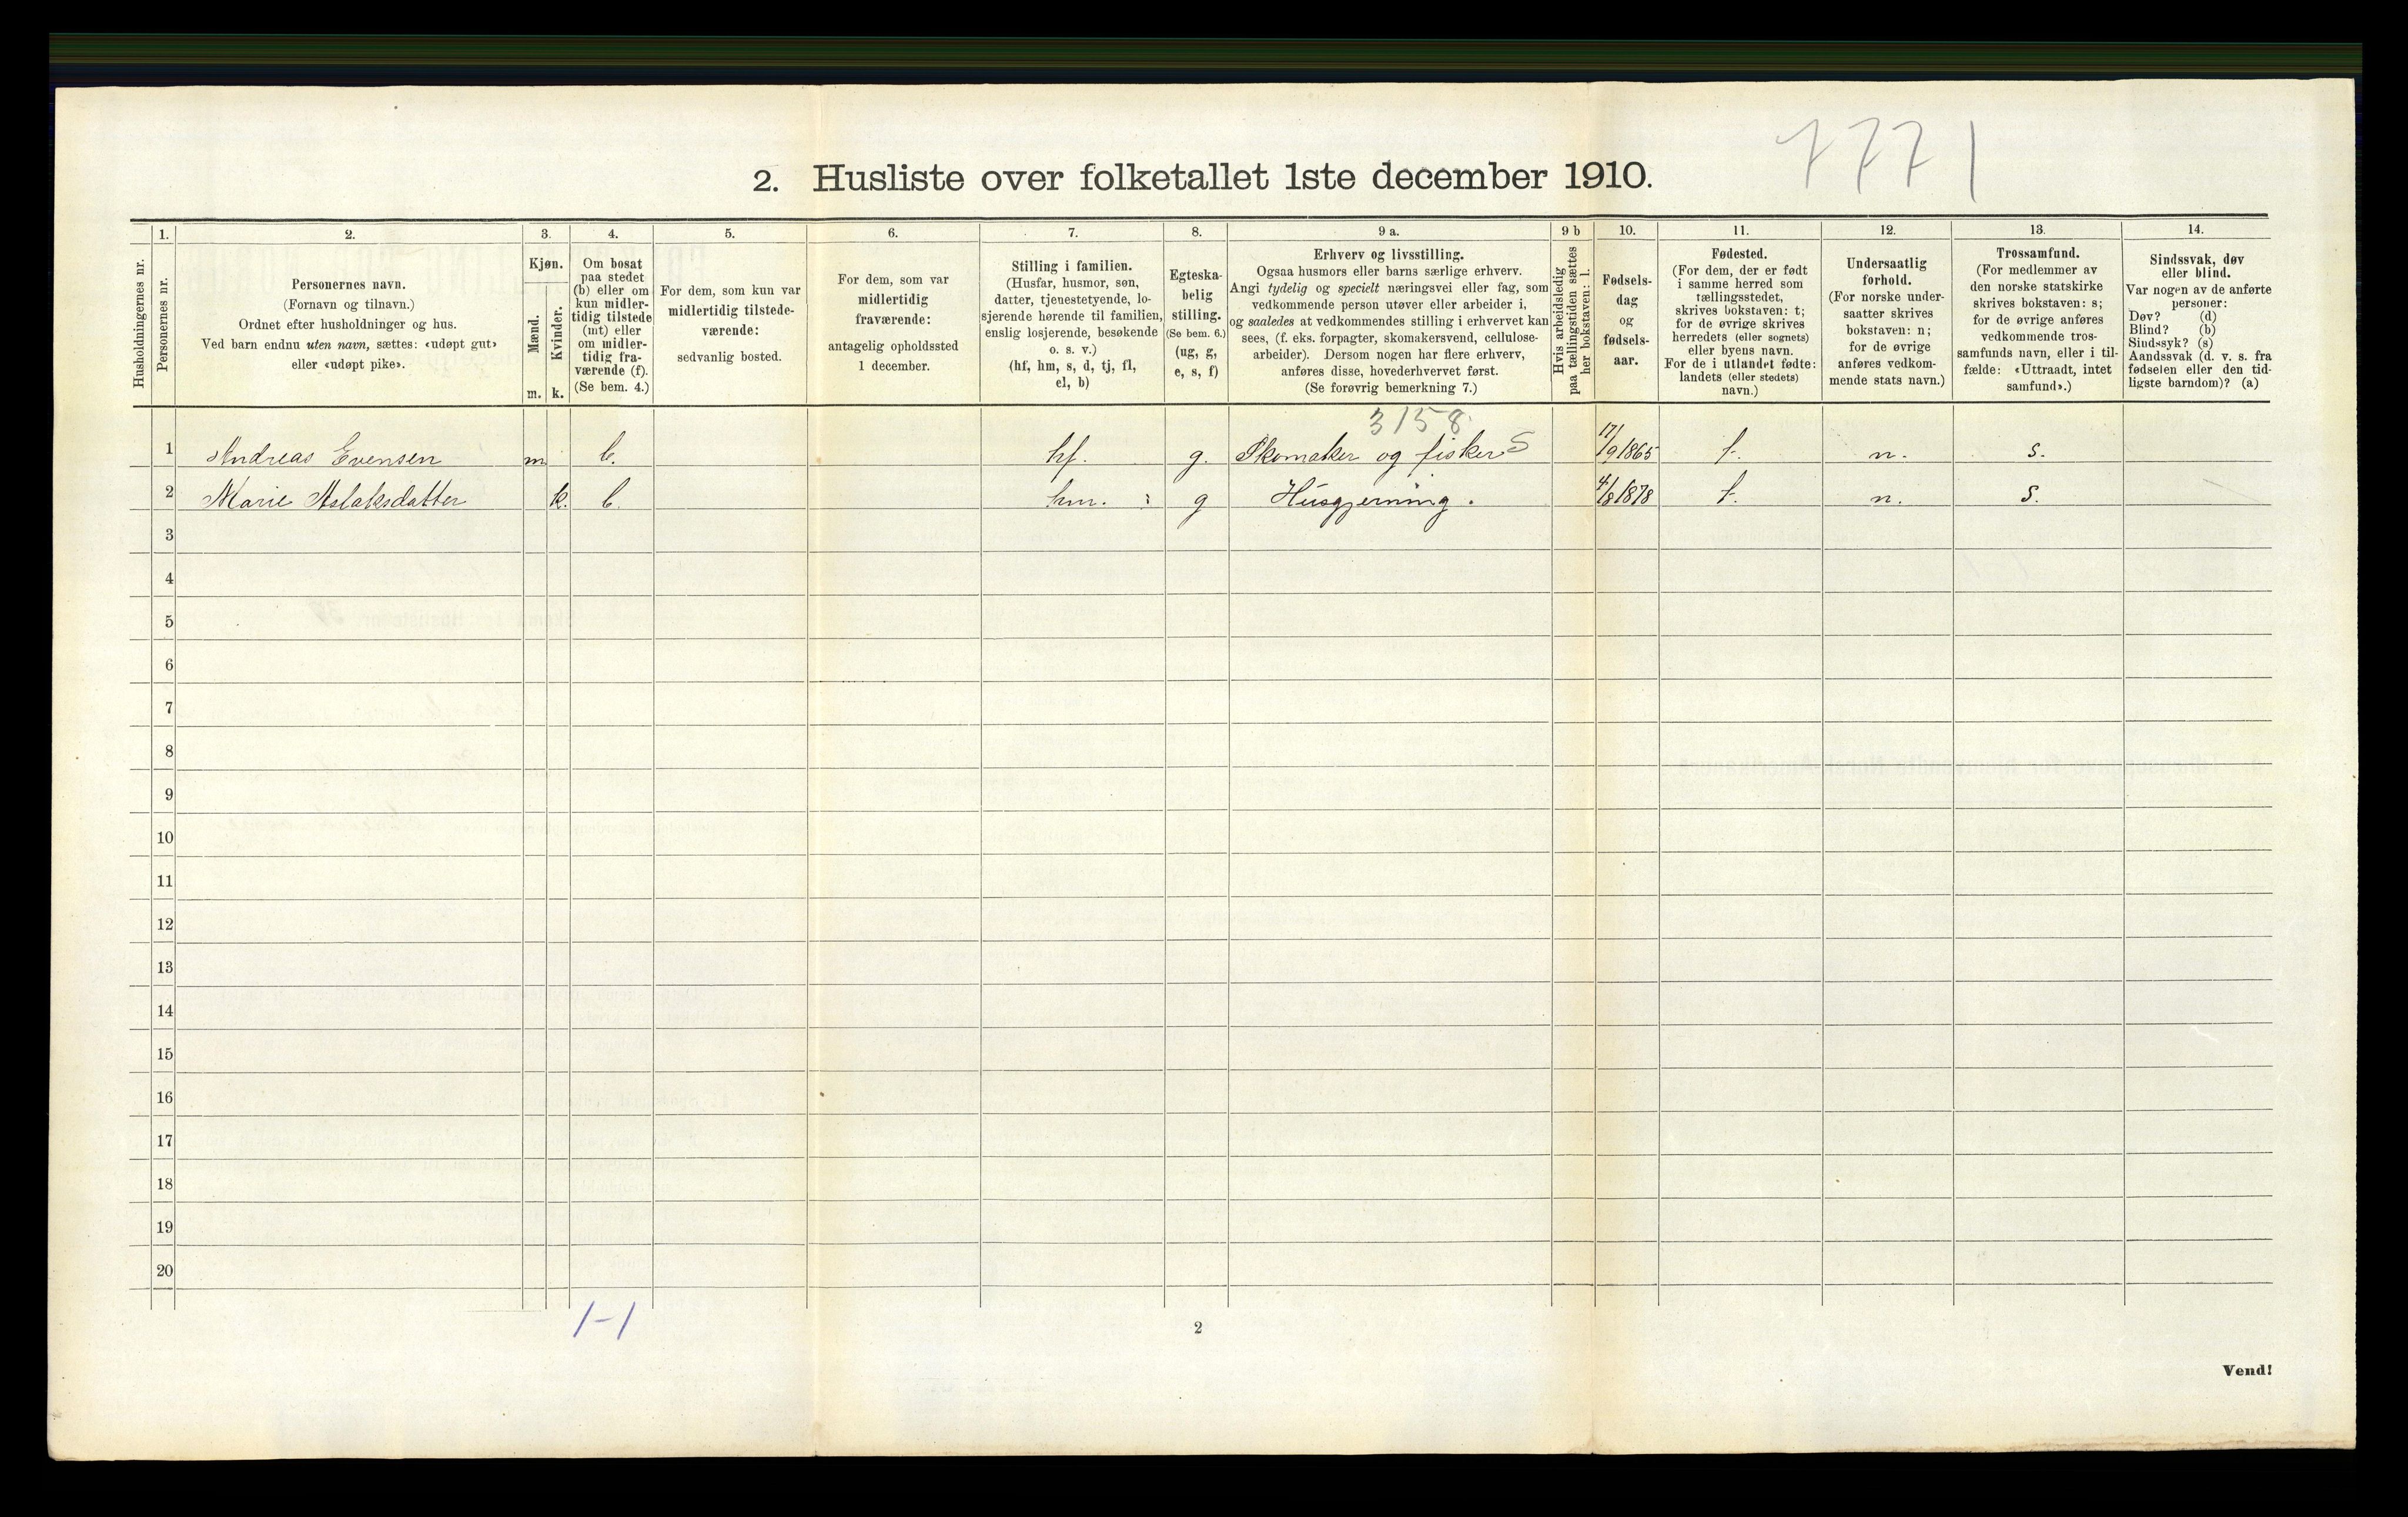 7771
2. Husliste over folketallet 1ste december 1910.
Husholdningernes nr.
1.
Personernes nr.
2.
Personernes navn.
(Fornavn og tilnavn.)
Ordnet efter husholdninger og hus.
Ved barn endnu uten navn, sættes: «udøpt gut»
eller «udøpt pike».
3.
Kjøn.
Mænd.
Kvinder.
m. k.
4.
Om bosat
paa stedet
(b) eller om
kun midler-
tidig tilstede
(mt) eller
om midler-
tidig fra-
værende (f).
(Se bem. 4.)
5.
For dem, som kun var
midlertidig tilstede-
værende:
sedvanlig bosted.
6.
For dem, som var
midlertidig
fraværende:
antagelig opholdssted
1 december.
7.
Stilling i familien.
(Husfar, husmor, søn,
datter, tjenestetyende, lo-
sjerende hørende til familien,
enslig losjerende, besøkende
o. s. v.)
(hf, hm, s, d, tj, fl,
el, b)
8.
Egteska-
belig
stilling.
(Se bem. 6.)
(ug, g,
e, s, f)
9 a.
Erhverv og livsstilling.
Ogsaa husmors eller barns særlige erhverv.
Angi tydelig og specielt næringsvei eller fag, som
vedkommende person utøver eller arbeider i,
og saaledes at vedkommendes stilling i erhvervet kan
sees, (f. eks. forpagter, skomakersvend, cellulose-
arbeider). Dersom nogen har flere erhverv,
anføres disse, hovederhvervet først.
(Se forøvrig bemerkning 7.)
9 b
Hvis arbeidsledig
paa tællingstiden sættes
her bokstaven: l.
10.
Fødsels-
dag
og
fødsels-
aar.
11.
Fødested.
(For dem, der er født
i samme herred som
tællingsstedet,
skrives bokstaven: t;
for de øvrige skrives
herredets (eller sognets)
eller byens navn.
For de i utlandet fødte:
landets (eller stedets)
navn.)
12.
Undersaatlig
forhold.
(For norske under-
saatter skrives
bokstaven: n;
for de øvrige
anføres vedkom-
mende stats navn.)
13.
Trossamfund.
(For medlemmer av
den norske statskirke
skrives bokstaven: s;
for de øvrige anføres
vedkommende tros-
samfunds navn, eller i til-
fælde: «Uttraadt, intet
samfund».)
14.
Sindssvak, døv
eller blind.
Var nogen av de anførte
personer:
Døv? (d)
Blind? (b)
Sindssyk? (s)
Aandssvak (d. v. s. fra
fødselen eller den tid-
ligste barndom)? (a)
3158
1 Andreas Evensen m b. hf. g. Skomaker og fisker S 17/9 1865 t. n. s.
2 Marie Aslaksdatter k. b. hm. g Husgjerning. 4/8 1878 t. n. s.
3
4
5
6
7
8
9
10
11
12
13
14
15
16
17
18
19
20
1-1
2
Vend!